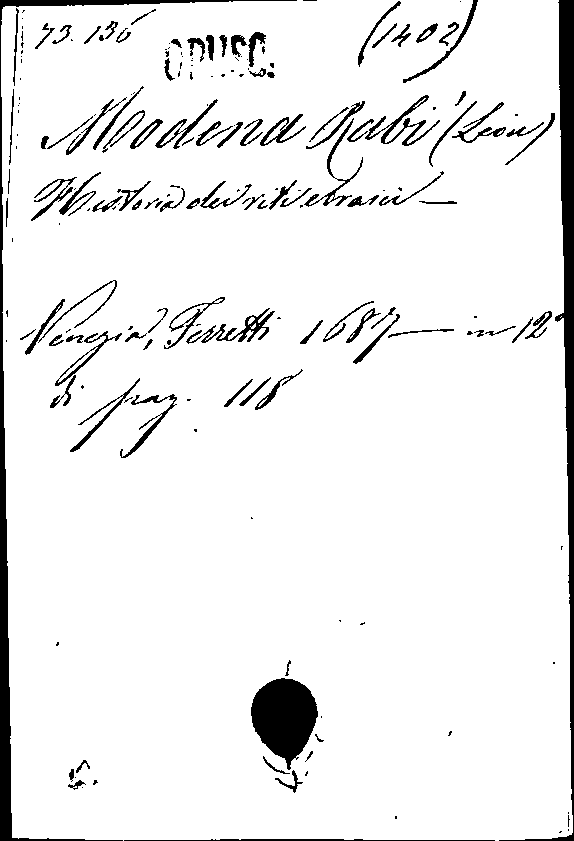 73. 136 OPUSC. (1402)
Modena Rabi (Leon)
Historia dei riti ebraici —
Venezia, Ferretti 1687 — in 12°
di pag. 118